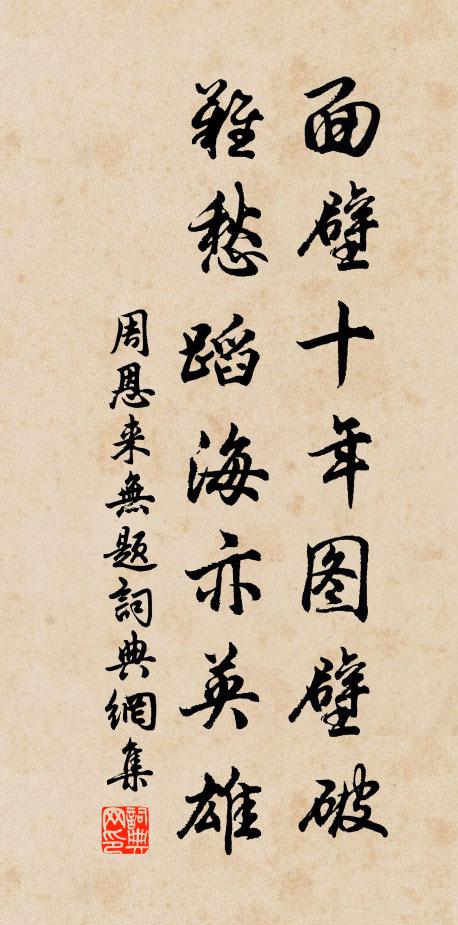 面壁十年图壁破
難愁蹈海亦英雄
周恩来無题詞典網集
詞典
网印